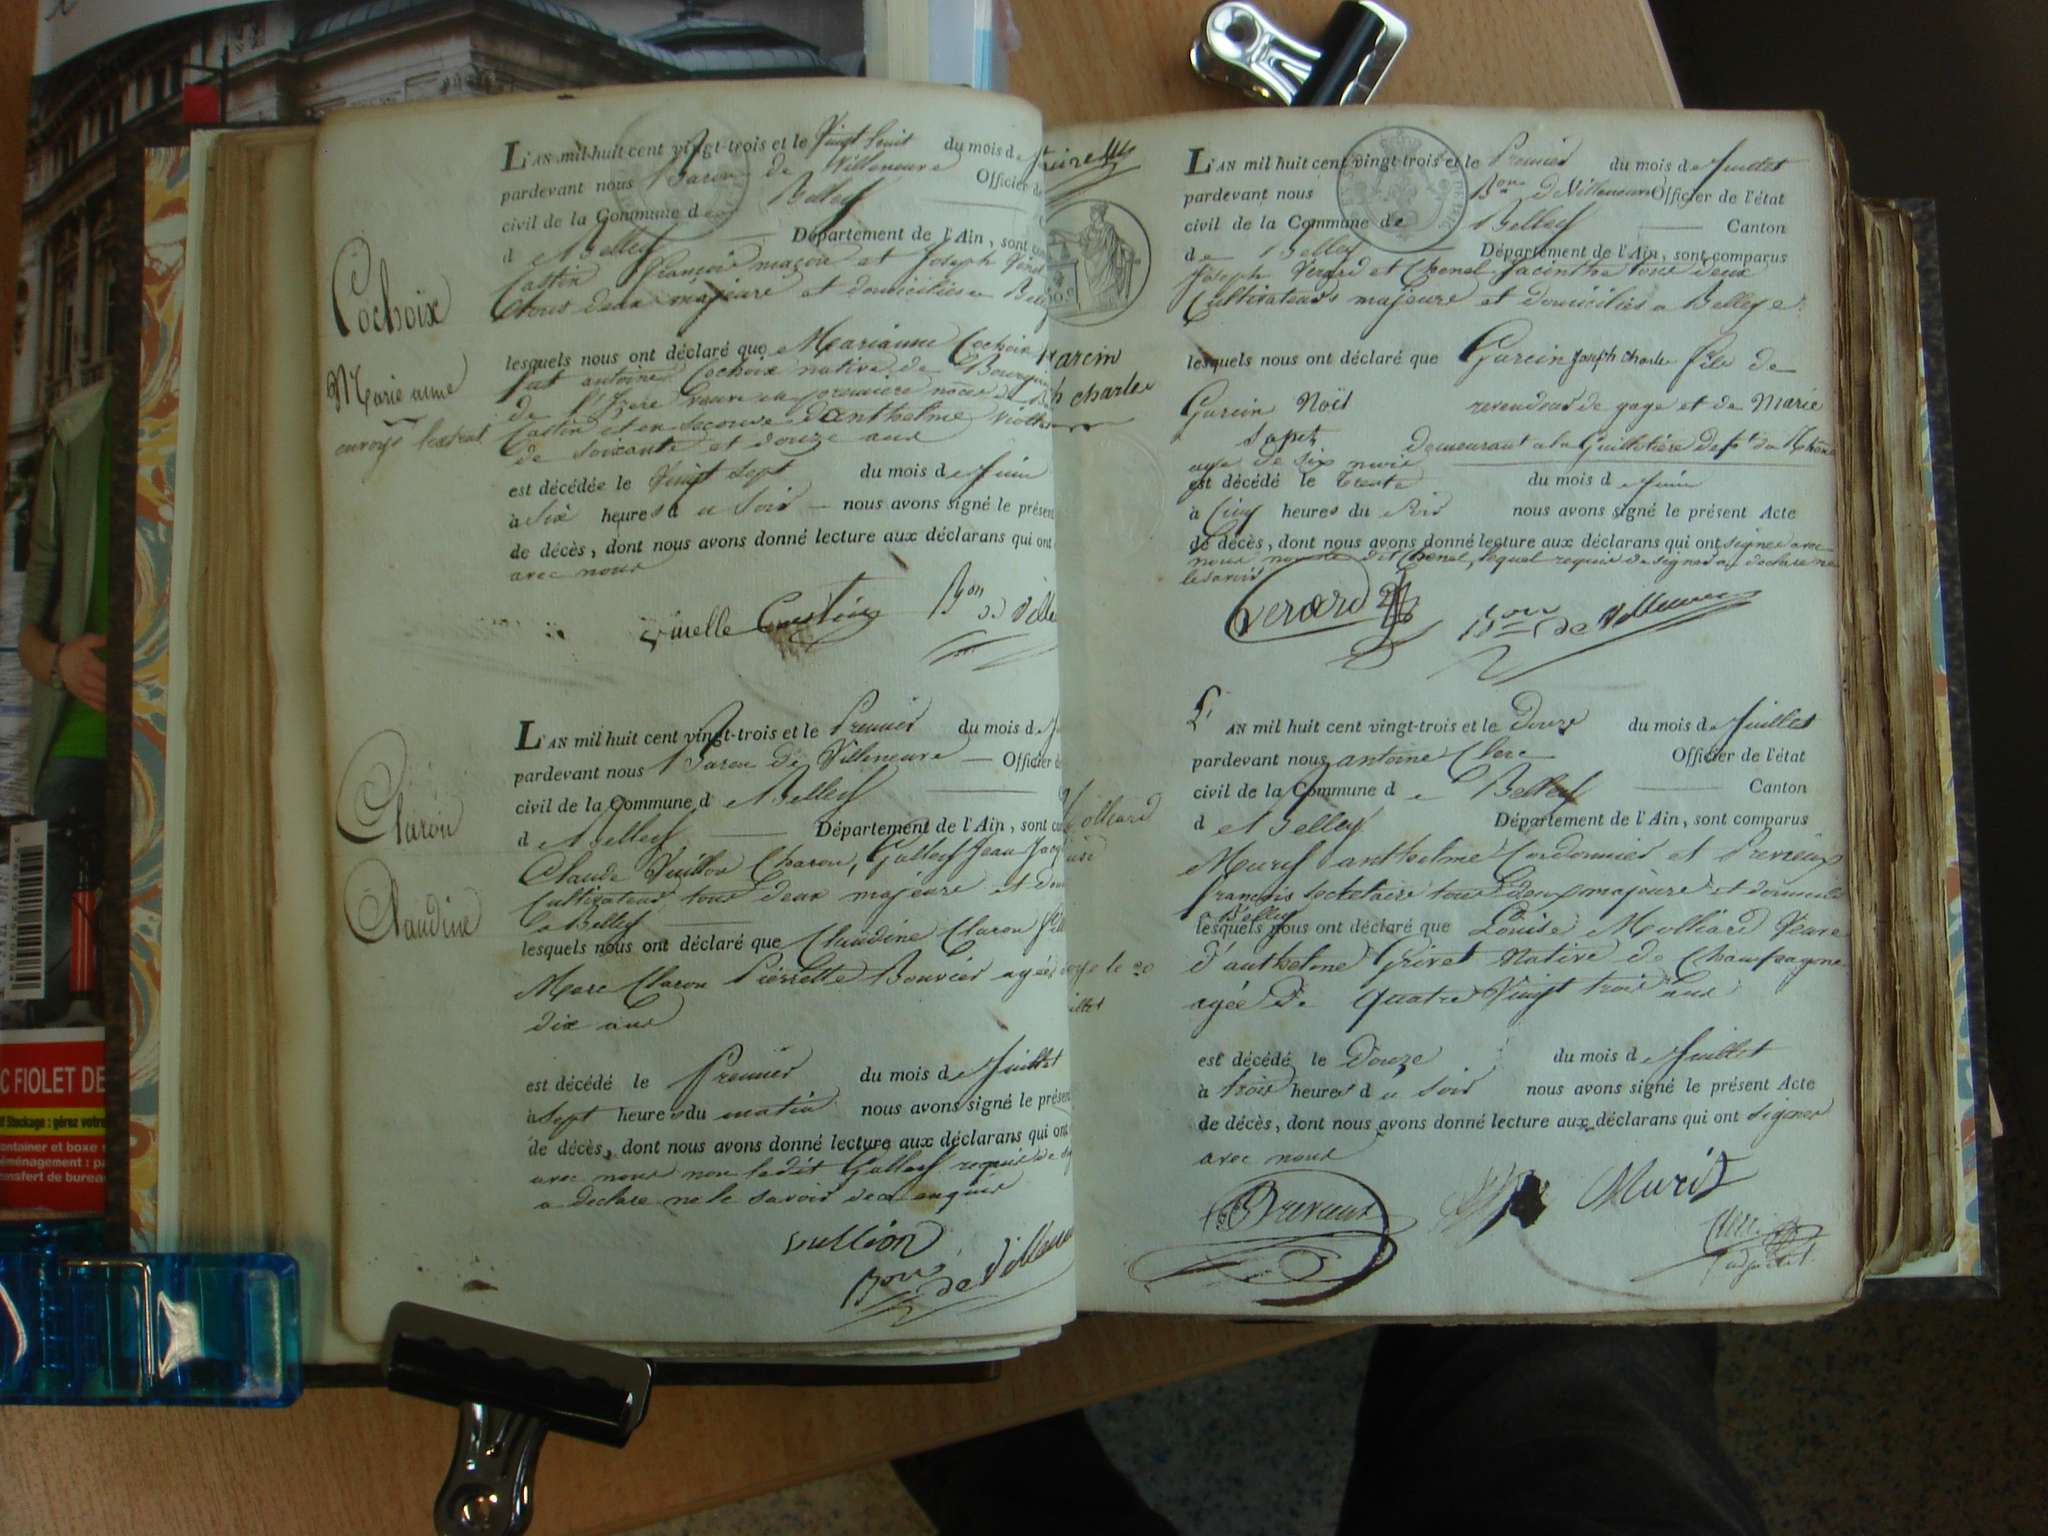 Cochoix
Marie anne
envoyé l'extrait
L'AN mil huit cent vingt-trois et le Vingt huit du mois de
pardevant nous Baron de Villeneuve Officier de
civil de la Commune de Belley
d e Belley Département de l'Ain, sont com
Castin François maçon et Joseph
tous deux majeurs et domiciliés a Belley
lesquels nous ont déclaré que Marianne Cochoix
fut antoine Cochoix native de Bourgoin
de l'Izere Veuve en première noces de
Castin et en seconde d'anthelme Viollet
de soixante et douze ans
est décédée le Vingt Sept du mois de Juin
à Six heures du Soir nous avons signé le présent
de décès, dont nous avons donné lecture aux déclarans qui ont
avec nous
Bon de Ville
Claron
Claudine
L'AN mil huit cent vingt-trois et le Premier du mois de
pardevant nous Baron de Villeneuve Officier de
civil de la Commune de Belley
d e Belley Département de l'Ain, sont com
Claude Vuillon Charon, Gallay Jean Jacq
Cultivateurs tous deux majeurs et dom
a Belley
lesquels nous ont déclaré que Claudine Claron fille
Marc Claron Pierrette Bouvier agée
dix ans
est décédé le Premier du mois de Juillet
à Sept heures du matin nous avons signé le présent
de décès, dont nous avons donné lecture aux déclarans qui ont
avec nous non ledit Gallay requis de
a déclaré ne le savoir de ce enquis
Vullion
Bon de Villeneu
Garcin
h charles
olliard
uise
oyé le 20
uillet
L'AN mil huit cent vingt-trois et le Premier du mois de Juillet
pardevant nous Bon de Villeneuve Officier de l'état
civil de la Commune de Belley Canton
de Belley Département de l'Ain, sont comparus
Joseph Verard et Chenel Jacinthe tous deux
Cultivateurs majeurs et domiciliés a Belley
lesquels nous ont déclaré que Garcin Joseph Charles fils de
Garcin Noël revendeur de gage et de Marie
Sapet demeurant a la Guillotière depst du Rhône
age de six mois
est décédé le trente du mois de Juin
à Cinq heures du Soir nous avons signé le présent Acte
de décès, dont nous avons donné lecture aux déclarans qui ont signés avec
nous non le dit Chenel, lequel requis de signer a déclaré ne
le savoir
Verard
Bon de Villeneuve
L'AN mil huit cent vingt-trois et le Douze du mois de Juillet
pardevant nous antoine Clerc Officier de l'état
civil de la Commune de Belley Canton
d e Belley Département de l'Ain, sont comparus
Muris anthelme Cordonnier et Previeux
françois Secretaire tous deux majeurs et domiciliés
a Belley
lesquels nous ont déclaré que Louise Molliard Veuve
d'anthelme Grivet Native de Champagne
agée de quatre Vingt trois ans
est décédé le Douze du mois de Juillet
à trois heures du Soir nous avons signé le présent Acte
de décès, dont nous avons donné lecture aux déclarans qui ont signer
avec nous
Previeux
Muris
Clerc
adjoint
C FIOLET DE
Stockage : gérez votre
ontainer et boxe
éménagement : pa
ansfert de bureau